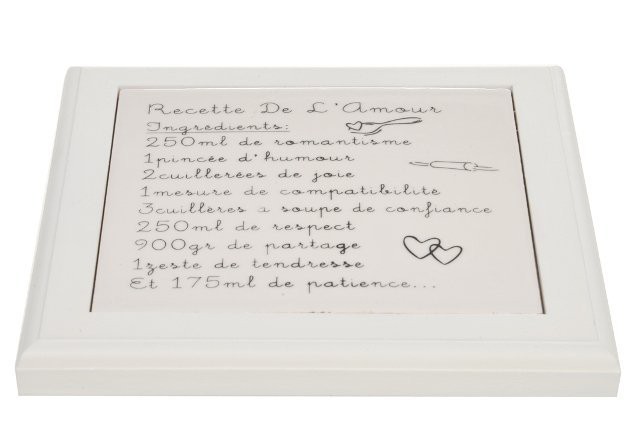 Recette De L'Amour
Ingrédients:
250ml de romantisme
1pincée d'humour
2cuillerées de joie
1mesure de compatibilité
3cuillères à soupe de confiance
250ml de respect
900gr de partage
1zeste de tendresse
Et 175ml de patience...